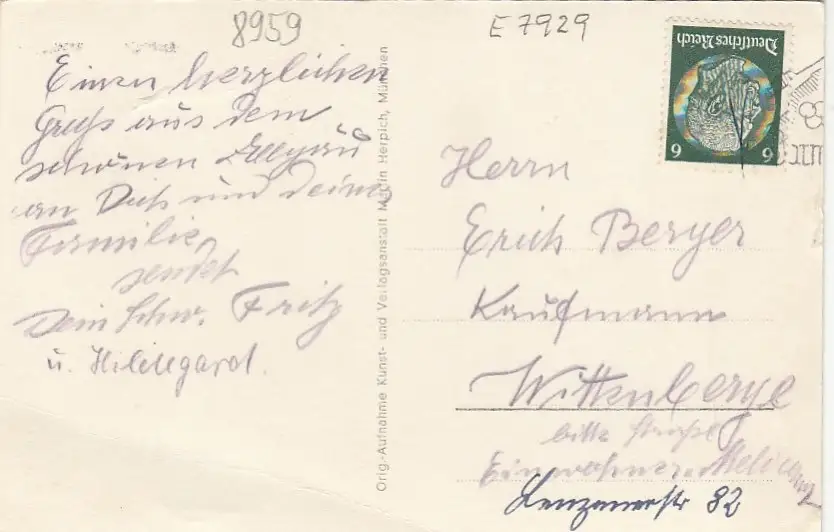 8959
E 7929
Deutsches Reich
6 6
Einen herzlichen
Gruß aus dem
schönen Allgäu
an Dich und deine
Familie,
sendet
Dein Schw. Fritz
u. Hildegard.
Orig.-Aufnahme Kunst- und Verlagsanstalt Martin Herpich, München
Herrn
Erich Berger
Kaufmann
Wittenberge
bitte Straße
Einwohner-Meldeamt
Lenzenerstr 82